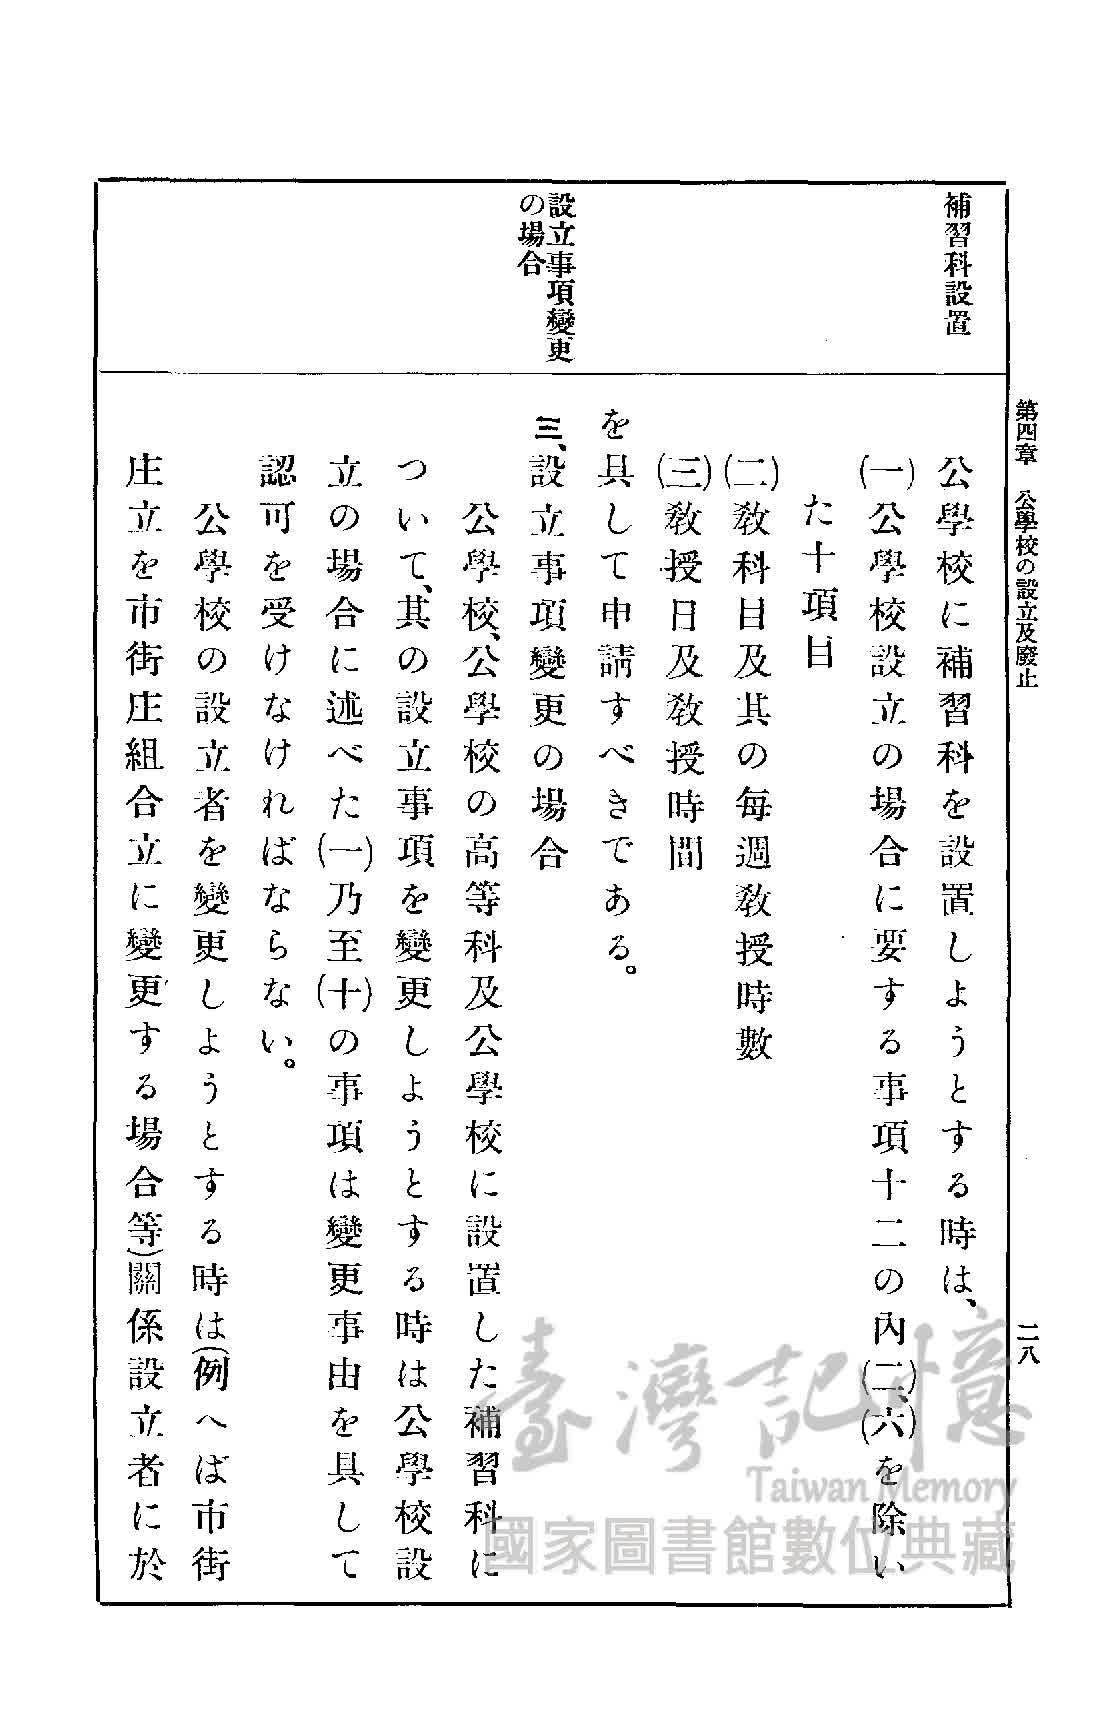 第四章 公學校の設立及廢止
二八
補習科設置
公學校に補習科を設置しようとする時は、
(一)公學校設立の場合に要する事項十二の內(二)、(六)を除い
た十項目
(二)敎科目及其の每週敎授時數
(三)敎授日及敎授時間
を具して申請すべきである。
設立事項變更
の場合
三、設立事項變更の場合
公學校、公學校の高等科及公學校に設置した補習科に
ついて、其の設立事項を變更しようとする時は公學校設
立の場合に述べた(一)乃至(十)の事項は變更事由を具して
認可を受けなければならない。
公學校の設立者を變更しようとする時は(例へば市街
庄立を市街庄組合立に變更する場合等)關係設立者に於
臺灣記憶
Taiwan Memory
國家圖書館數位典藏